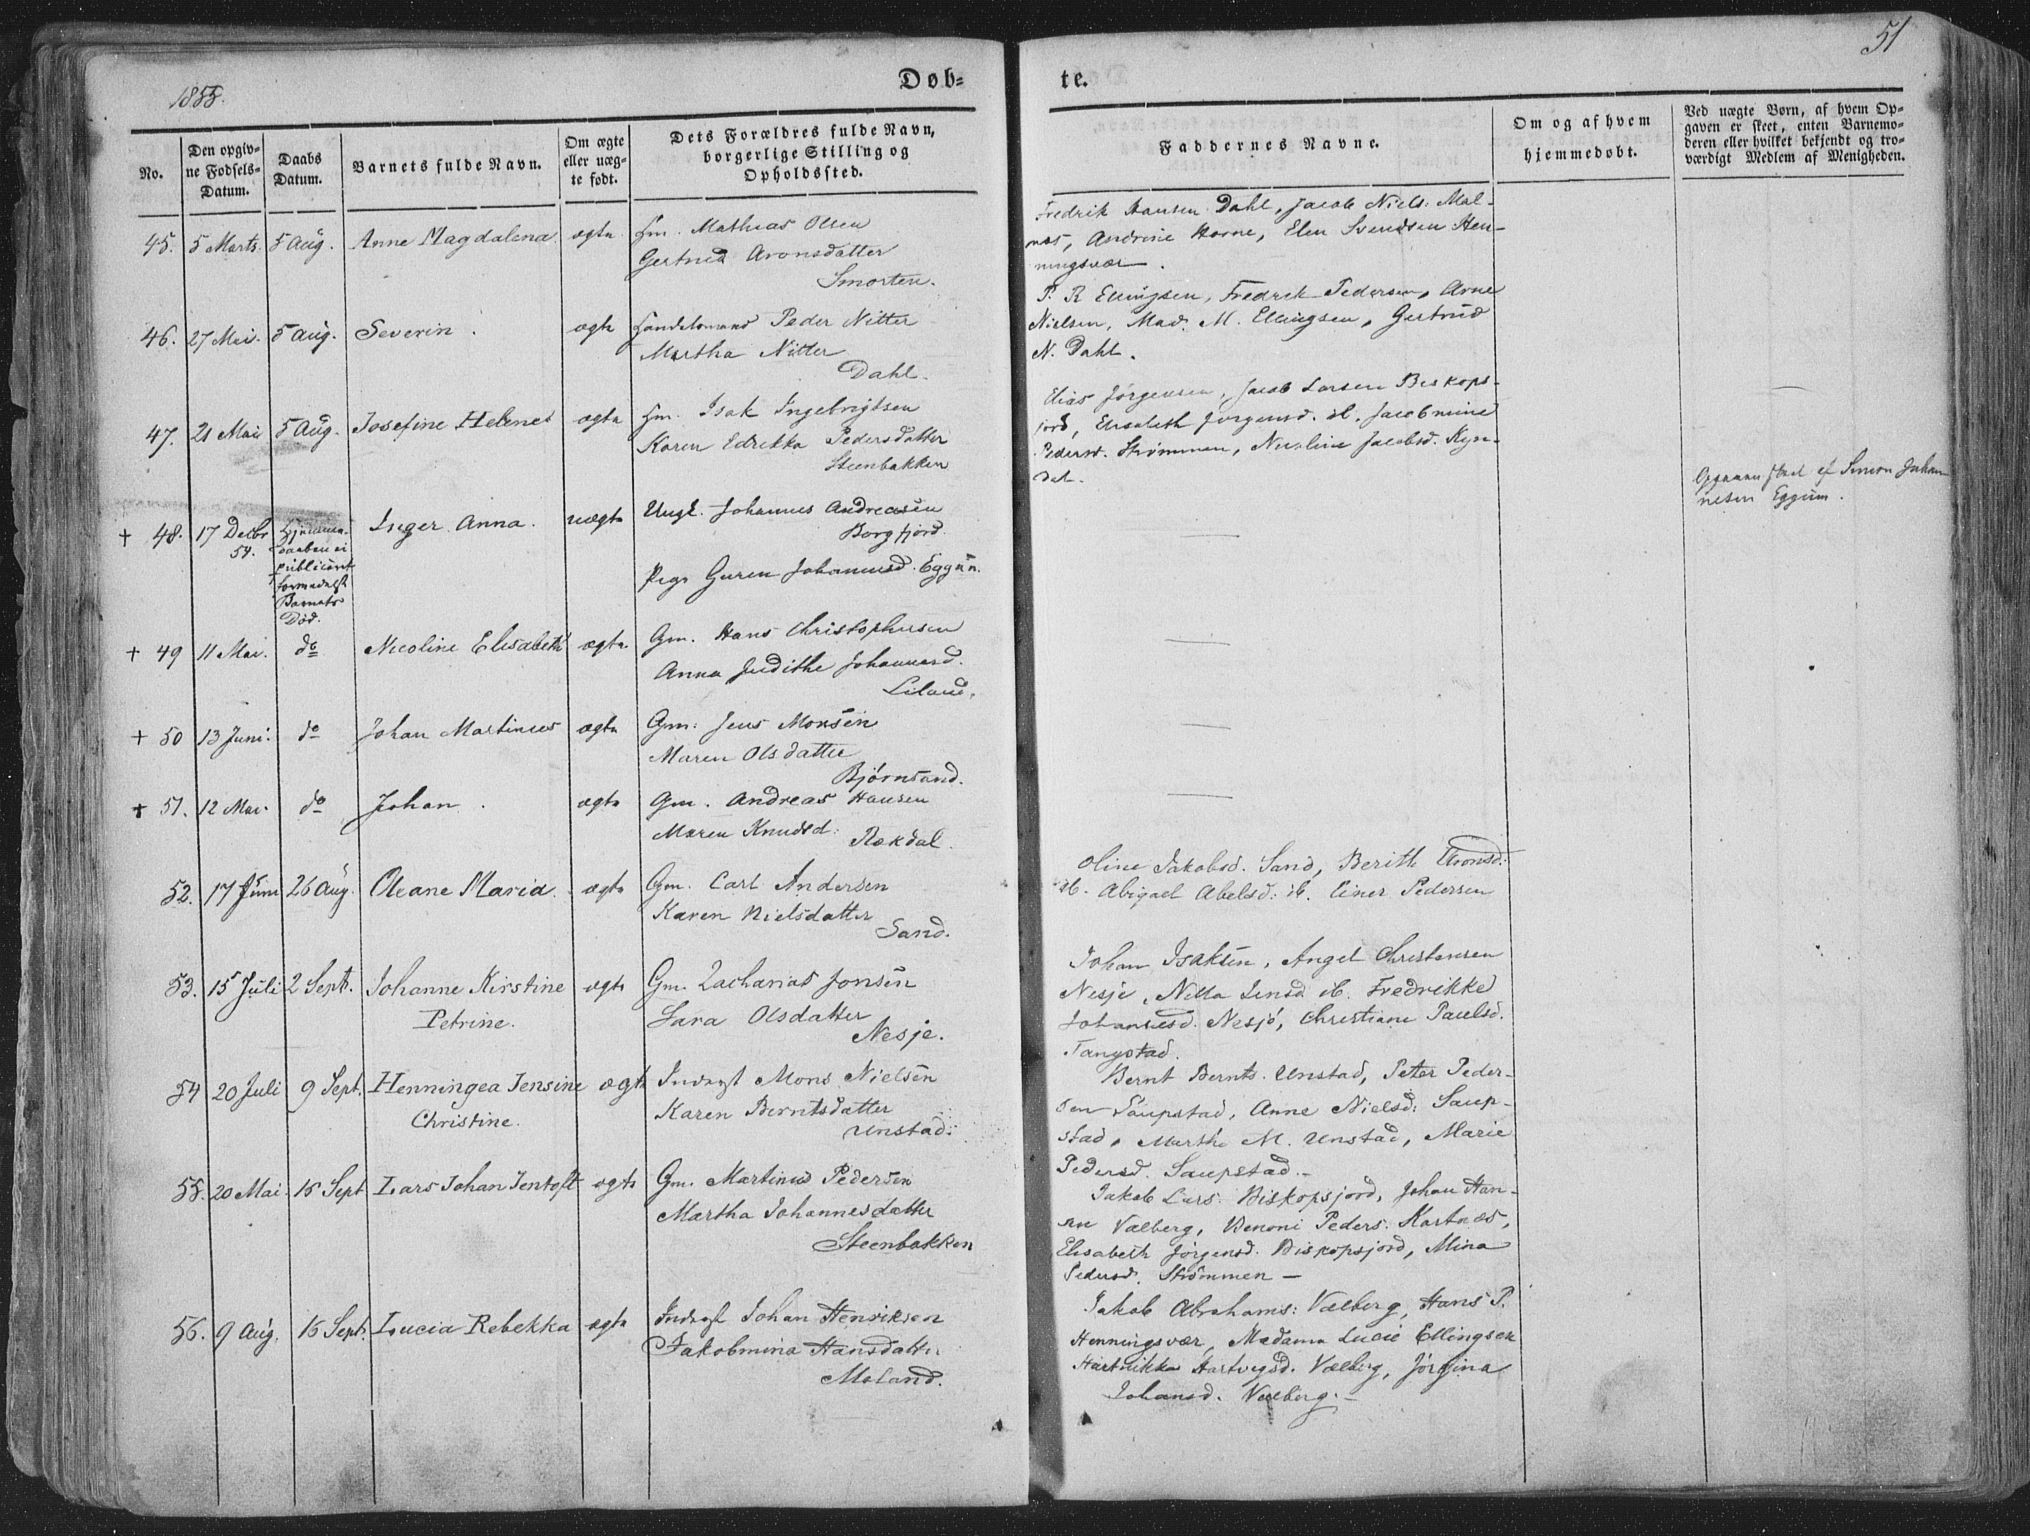 51
1855.
Døb=
te.
No.
Den opgiv=
ne Fødsels=
Datum.
Daabs
Datum.
Barnets fulde Navn.
Om ægte
eller uæg=
te født.
Dets Forældres fulde Navn,
borgerlige Stilling og
Opholdssted.
Faddernes Navne.
Om og af hvem
hjemmedøbt.
Ved uægte Børn, af hvem Op=
gaven er skeet, enten Barnemo=
deren eller hvilket bekjendt og tro=
værdigt Medlem af Menigheden.
45. 5 Marts. 5 Aug. Anne Magdalena. ægte Hm. Mathias Olsen
Gertrud Aronsdatter
Smorten.
Fredrik Hansen Dahl, Jacob Niels. Mal-
nes, Andrine Horne, Elen Svendsen Hen-
ningsvær.
46. 27 Mai. 5 Aug. Severin. ægte Handelsmand Peder Nitter
Martha Nitter
Dahl.
P. R Ellingsen, Fredrik Pedersen, Arne
Nielsen, Mad. M. Ellingsen, Gertrud
N. Dahl.
47. 21 Mai 5 Aug. Josefine Helene ægte Hm. Isak Ingebrigtsen
Karen Edrikka Pedersdatter
Steenbakken
Elias Jørgensen, Jacob Larsen Biskops-
jord, Elisabeth Jørgensd. ib. Jacobmine
Pedersd. Strømmen, Nicoline Jacobsd. Kyn-
del.
† 48. 17 Decbr
54.
Hjemme-
daaben ei
publiceret
formedelst
Barnets
Død.
Inger Anna. uægte Ungk. Johannes Andreasen
Borgfjord.
Pige Guren Johannesd. Eggum.
Opgaven skeet af Simon Johan
nesen Eggum.
† 49 11 Mai. do Nicoline Elisabeth ægte. Gm. Hans Christophersen
Anna Judithe Johannesd.
Liland.
† 50 13 Juni. do Johan Martinus ægte Gm. Jens Monsen
Maren Olsdatter
Bjørnsand.
† 51. 12 Mai. do Johan. ægte Gm. Andreas Hansen
Maren Knudsd.
Rækdal.
52. 17 Juni 26 Aug. Oleane Maria. ægte Gm. Carl Andersen
Karen Nielsdatter
Sand.
Oline Jakobsd. Sand, Berith Aronsd.
ib. Abigael Abelsd: ib. Einer Pedersen
53. 15 Juli 2 Sept. Johanne Kirstine
Petrine.
ægte Gm. Zacharias Jonsen
Sara Olsdatter
Nesje.
Johan Isaksen, Angel Christensen
Nesje, Nella Jensd ib. Fredrikke
Johannesd. Nesjé, Christiane Paulsd.
Tangstad.
54 20 Juli 9 Sept. Henningea Jensine
Christine.
ægte Inderst Mons Nielsen
Karen Berntsdatter
Unstad.
Bernt Bernts. Unstad, Peter Peder-
sen Saupstad, Anne Nielsd: Saup-
stad, Marthe M. Unstad, Marie
Pedersd. Saupstad.-
55. 20 Mai. 16 Sept Lars Johan Jentoft ægte Gm. Martinus Pedersen
Martha Johannesdatter
Steenbakken
Jakob Lars. Biskopsjord, Johan Han-
sen Valberg, Benoni Peders. Kartnes,
Elisabeth Jørgensd. Biskopsjord, Mina
Pedersd. Strømmen —
56. 9 Aug. 16 Sept. Lucia Rebekka ægte Inderst Johan Henriksen
Jakobmina Hansdatter
Moland.
Jakob Abrahams: Valberg, Hans P.
Henningsvær, Madame Lucie Ellingsen
Hartvikka Hartvigsd. Valberg, Jørgina
Johansd. Valberg.-